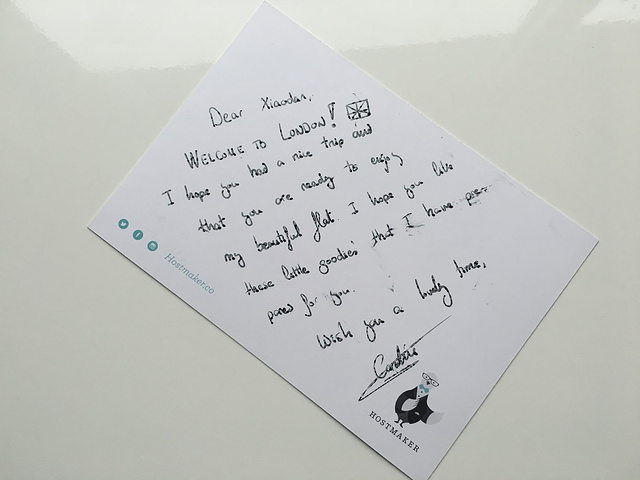 Dear Xiaodan,
WELCOME TO LONDON!
I hope you had a nice trip and
that you are ready to enjoy
my beautiful flat. I hope you like
these little goodies that I have pre-
pared for you.
Wish you a lovely time,
Hostmaker.co
HOSTMAKER